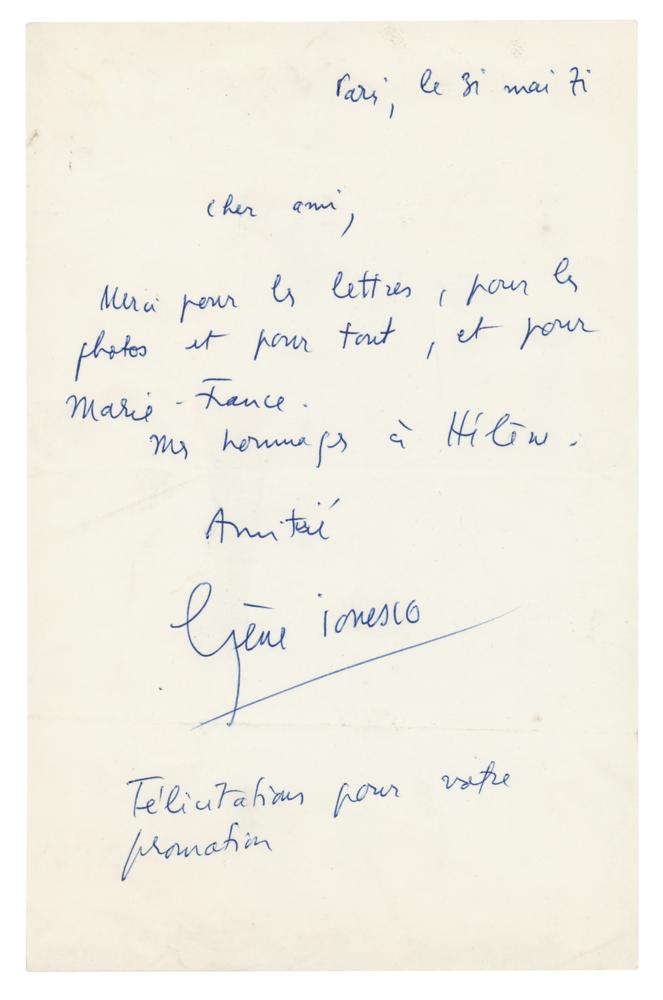 Paris, le 31 mai 71
cher ami,
Merci pour les lettres, pour les
photos et pour tout, et pour
Marie-France.
Mes hommages à Hélène.
Amitié
Eugène Ionesco
Félicitations pour votre
promotion